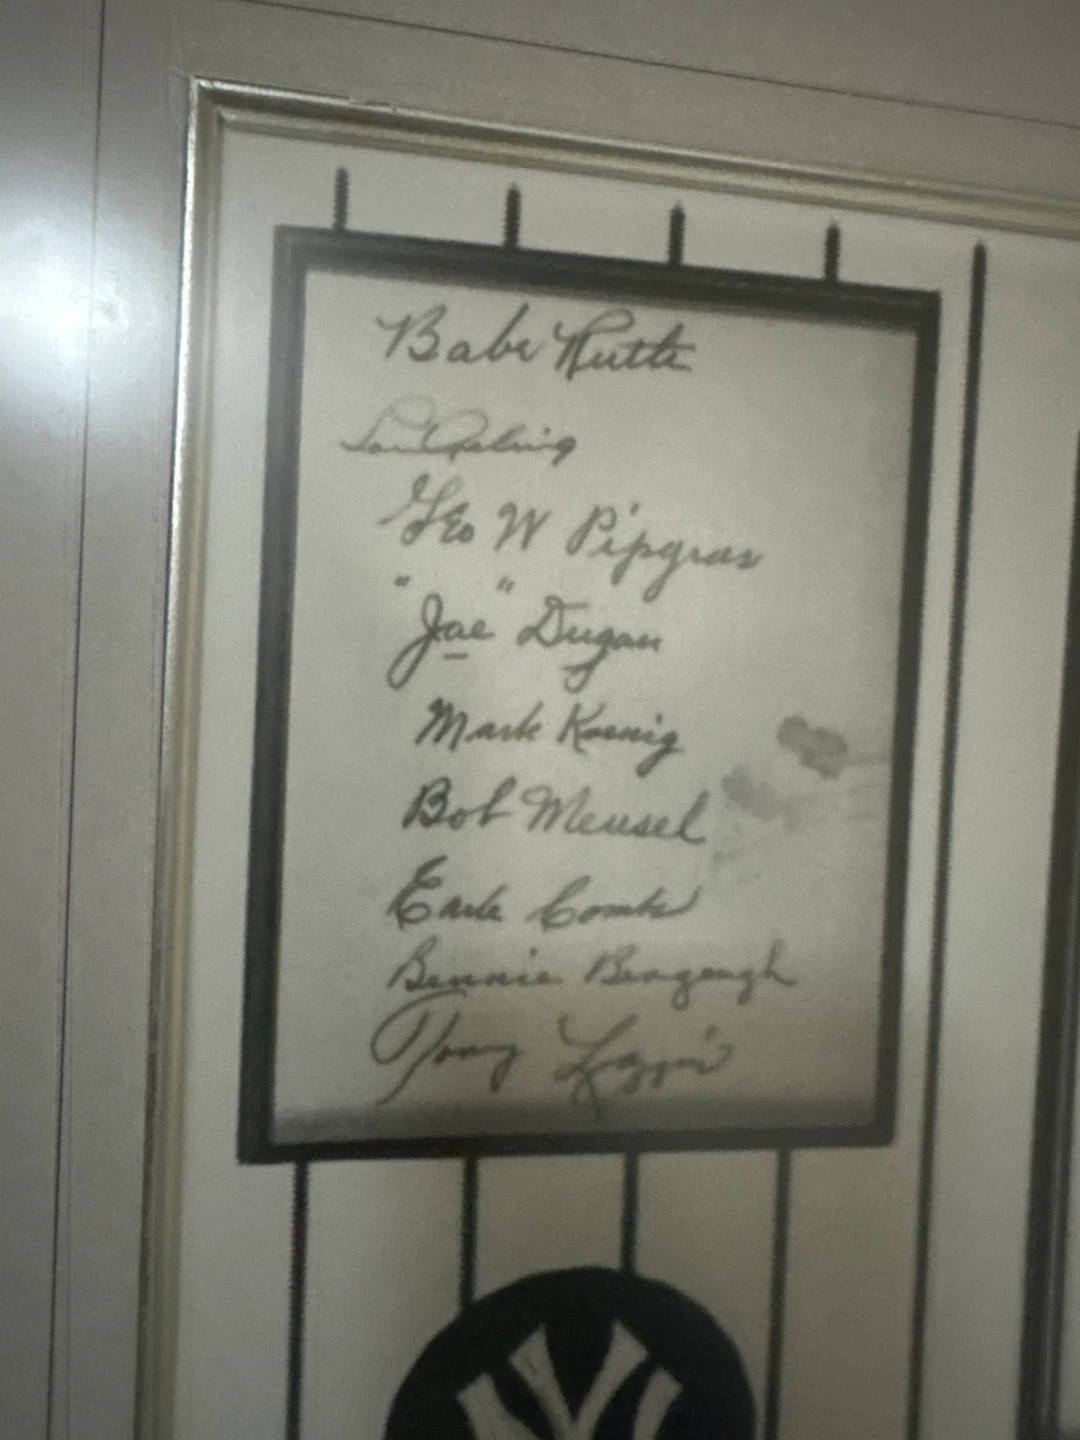 Babe Ruth
Lou Gehrig
Geo W Pipgras
"Joe" Dugan
Mark Koenig
Bob Meusel
Earle Combs
Bennie Bengough
Tony Lazzeri
NY